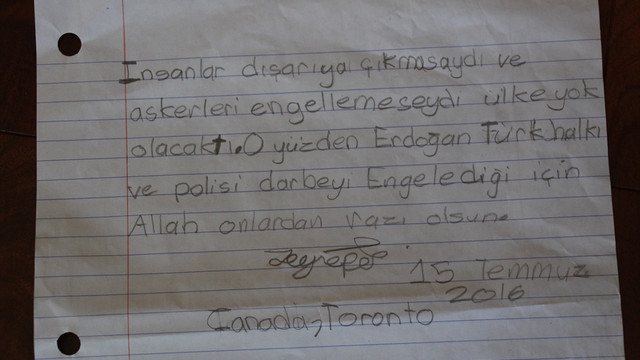 İnsanlar dışarıya çıkmasaydı ve
askerleri engellemeseydi ülke yok
olacaktı. O yüzden Erdoğan Türk halkı
ve polisi darbeyi Engelediği için
Allah onlardan razı olsun.
15 Temmuz
2016
Canada, Toronto